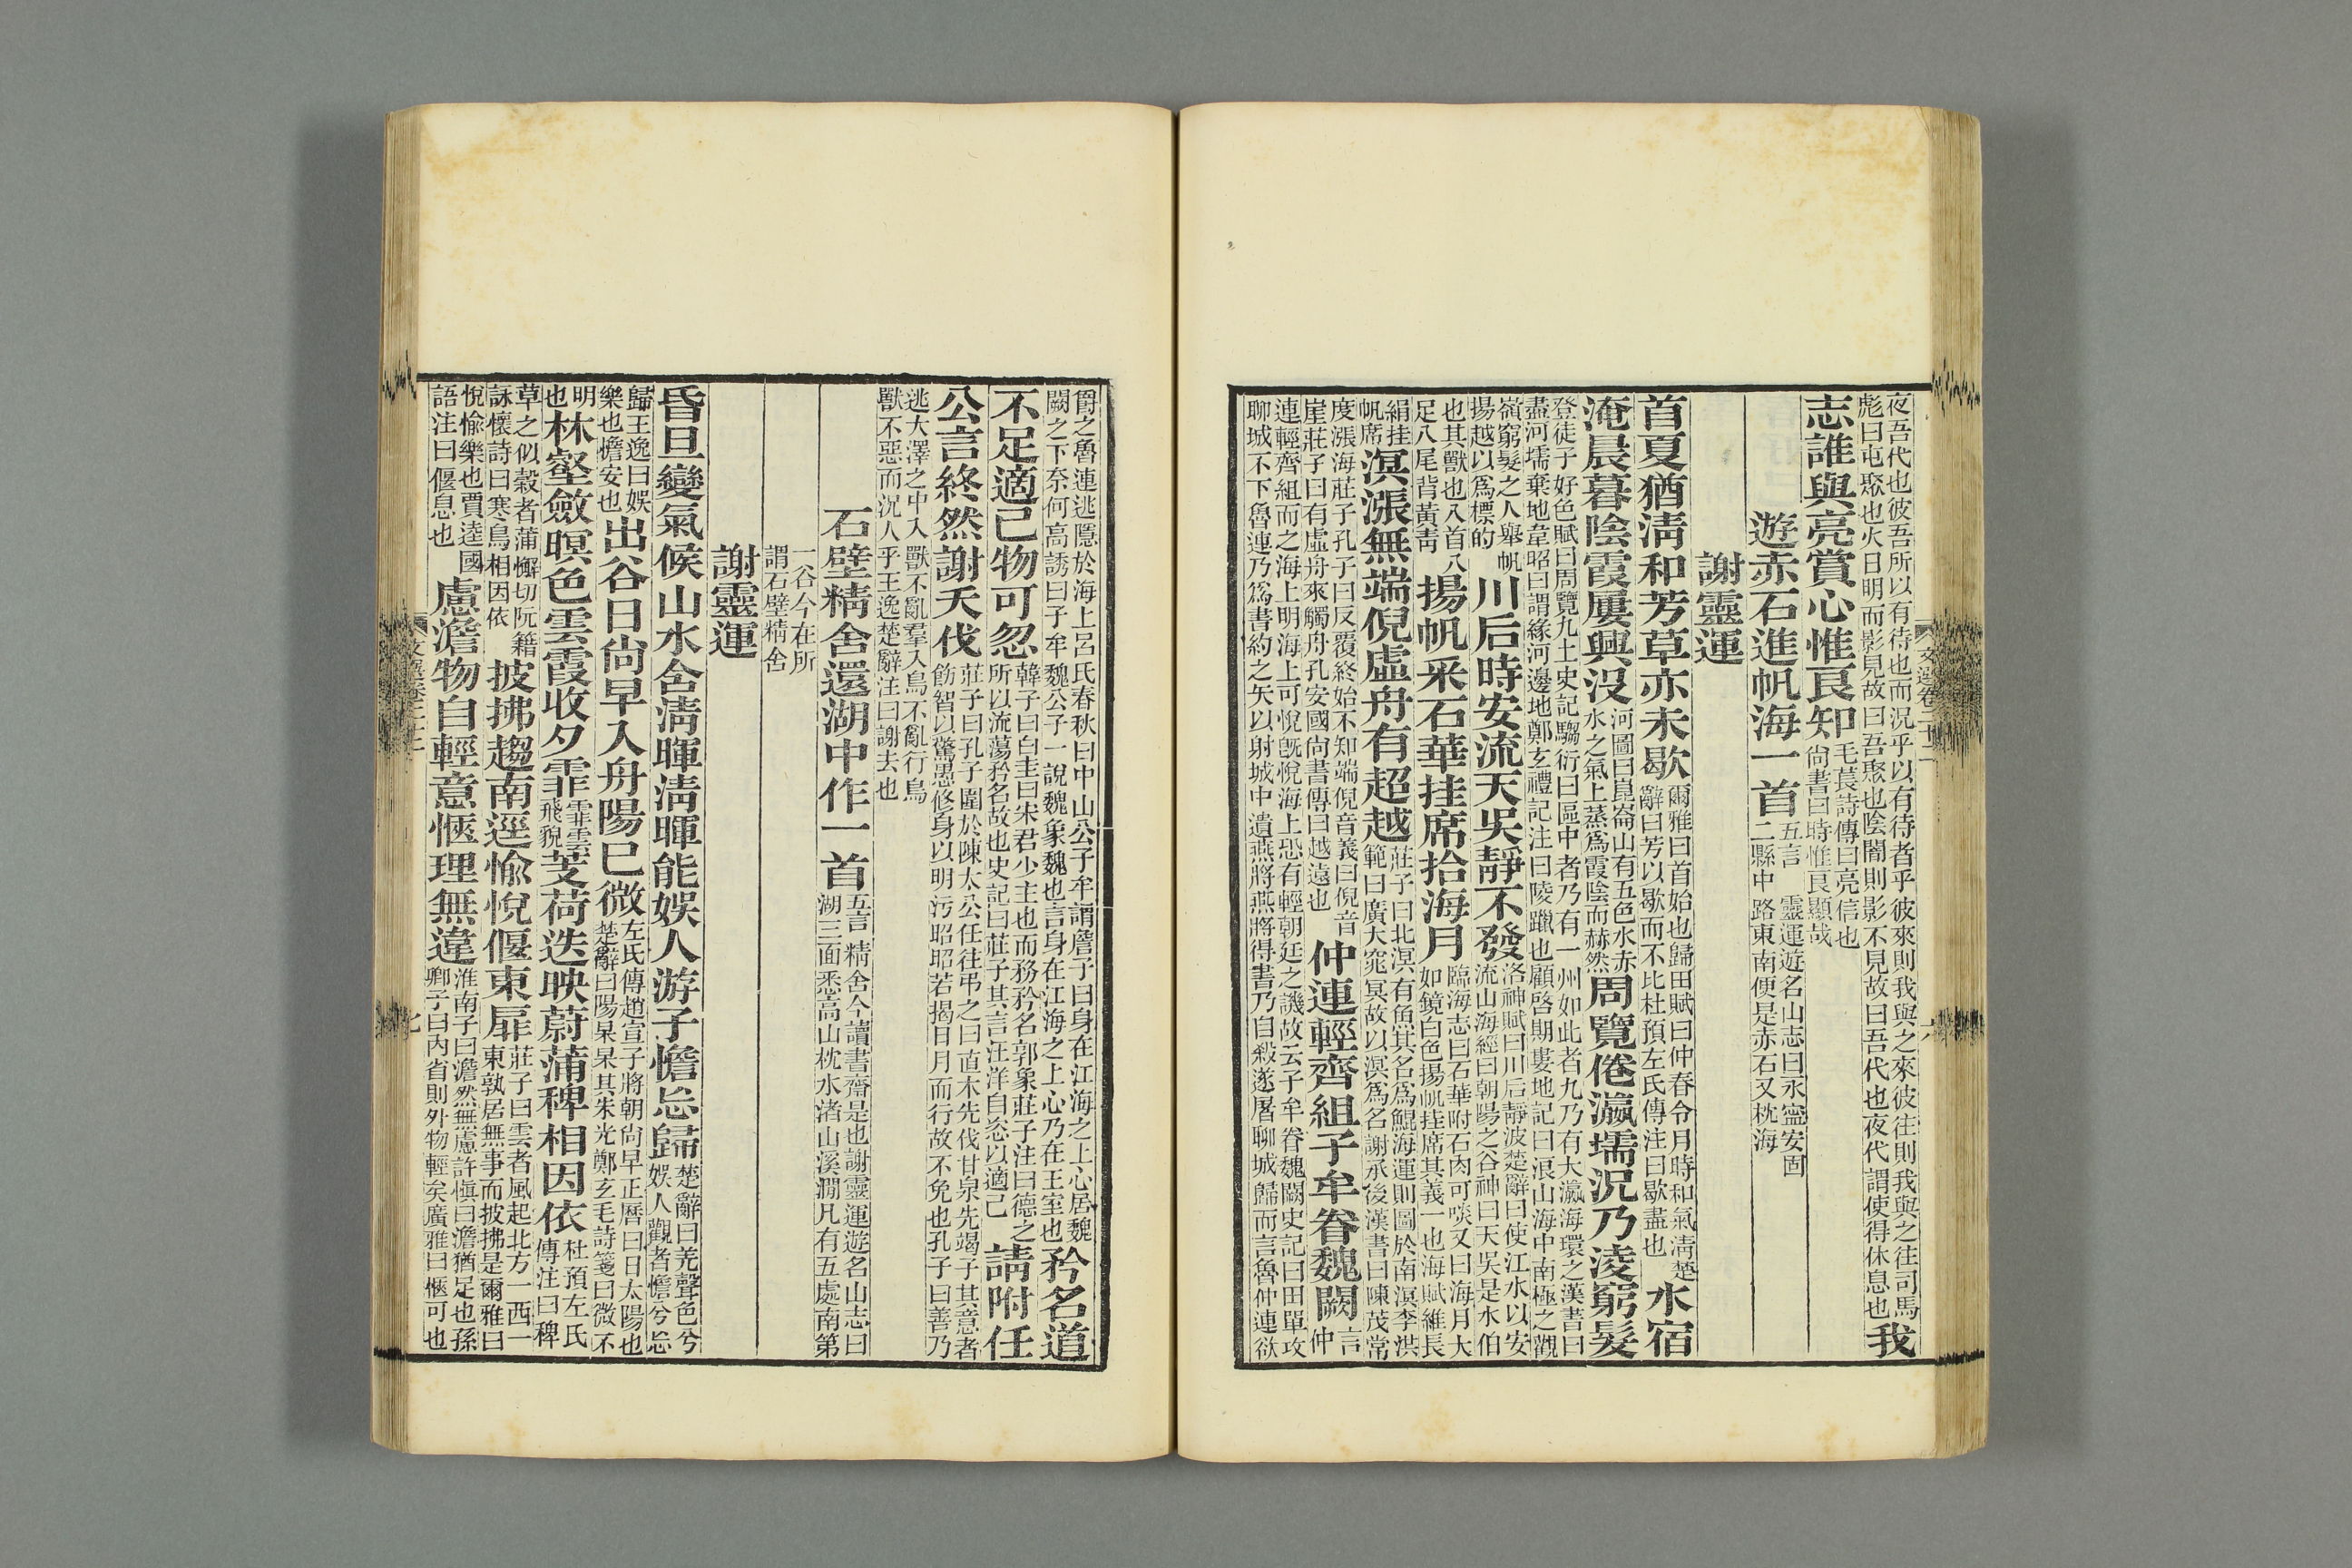 夜吾代也彼吾所以有待也而況乎以有待者乎彼來則我與之來彼往則我與之往司馬彪曰屯聚也火日明而影見故曰吾聚也陰闇則影不見故曰吾代也夜代謂使得休息也我
志誰與亮賞心惟良知毛萇詩傳曰亮信也尚書曰時惟良顯哉
遊赤石進帆海一首五言 靈運遊名山志曰永寧安固二縣中路東南便是赤石又枕海
謝靈運
首夏猶清和芳草亦未歇爾雅曰首始也歸田賦曰仲春令月時和氣清楚辭曰芳以歇而不比杜預左氏傳注曰歇盡也水宿
淹晨暮陰霞屢興没河圖曰崑崙山有五色水赤水之氣上蒸爲霞陰而赫然周覽倦瀛壖況乃淩窮髮
登徒子好色賦曰周覽九土史記騶衍曰區中者乃有一州如此者九乃有大瀛海環之漢書曰盡河壖棄地韋昭曰謂緣河邊地鄭玄禮記注曰陵躐也顧啓期婁地記曰浪山海中南極之觀
嶺窮髮之人舉帆揚越以爲標的川后時安流天吳靜不發洛神賦曰川后靜波楚辭曰使江水以安流山海經曰朝陽之谷神曰天吳是水伯
也其獸也八首八足八尾背黃青揚帆采石華挂席拾海月臨海志曰石華附石肉可啖又曰海月大如鏡白色揚帆挂席其義一也海賦維長
綃挂帆席溟漲無端倪虛舟有超越莊子曰北溟有魚其名爲鯤海運則圖於南溟李洪範曰廣大窕冥故以溟爲名謝承後漢書曰陳茂常
度漲海莊子孔子曰反覆終始不知端倪音義曰倪音崖莊子曰有虛舟來觸舟孔安國尚書傳曰越遠也仲連輕齊組子牟眷魏闕言仲
連輕齊組而之海上明海上可悅旣悅海上恐有輕朝廷之譏故云子牟眷魏闕史記曰田單攻聊城不下魯連乃爲書約之矢以射城中遺燕將燕將得書乃自殺遂屠聊城歸而言魯仲連欲
爵之魯連逃隱於海上呂氏春秋曰中山公子牟謂詹子曰身在江海之上心居魏闕之下奈何高誘曰子牟魏公子一說魏象魏也言身在江海之上心乃在王室也矜名道
不足適己物可忽韓子曰白圭曰宋君少主也而務矜名郭象莊子注曰德之所以流蕩矜名故也史記曰莊子其言汪洋自恣以適己請附任
公言終然謝天伐莊子曰孔子圍於陳太公任往弔之曰直木先伐甘泉先竭子其意者飭智以驚愚修身以明污昭昭若揭日月而行故不免也孔子曰善乃
逃大澤之中入獸不亂羣入鳥不亂行鳥獸不惡而況人乎王逸楚辭注曰謝去也
石壁精舍還湖中作一首五言 精舍今讀書齋是也謝靈運遊名山志曰湖三面悉高山枕水渚山溪澗凡有五處南第
一谷今在所謂石壁精舍
謝靈運
昏旦變氣候山水含清暉清暉能娛人游子憺忘歸楚辭曰羌聲色兮娛人觀者憺兮忘
歸王逸曰娛樂也憺安也出谷日尚早入舟陽已微左氏傳趙宣子將朝尚早正曆曰日太陽也楚辭曰陽杲杲其朱光鄭玄毛詩箋曰微不
明也林壑斂暝色雲霞收夕霏霏雲飛貌芰荷迭映蔚蒲稗相因依杜預左氏傳注曰稗
草之似穀者蒲懈切阮籍詠懷詩曰寒鳥相因依披拂趨南逕愉悅偃東扉莊子曰雲者風起北方一西一東孰居無事而披拂是爾雅曰
悅愉樂也賈逵國語注曰偃息也慮澹物自輕意愜理無違淮南子曰澹然無慮許慎曰澹猶足也孫卿子曰內省則外物輕矣廣雅曰愜可也